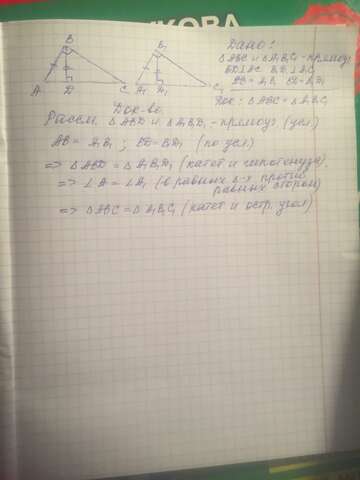 КОВА
Дано:
△ABC и △A₁B₁C₁ - прямоуг
BD⊥AC B₁D₁⊥A₁C₁
AB = A₁B₁ BD = B₁D₁
Док: △ABC = △A₁B₁C₁
B B₁
A D C A₁ D₁ C₁
Док-во
Рассм. △ABD и △A₁B₁D₁ - прямоуг (усл)
AB = A₁B₁ ; BD = B₁D₁ (по усл)
=> △ABD = △A₁B₁D₁ (катет и гипотенуза)
=> ∠A = ∠A₁ (в равных △-х против
равных сторон)
=> △ABC = △A₁B₁C₁ (катет и остр. угол)